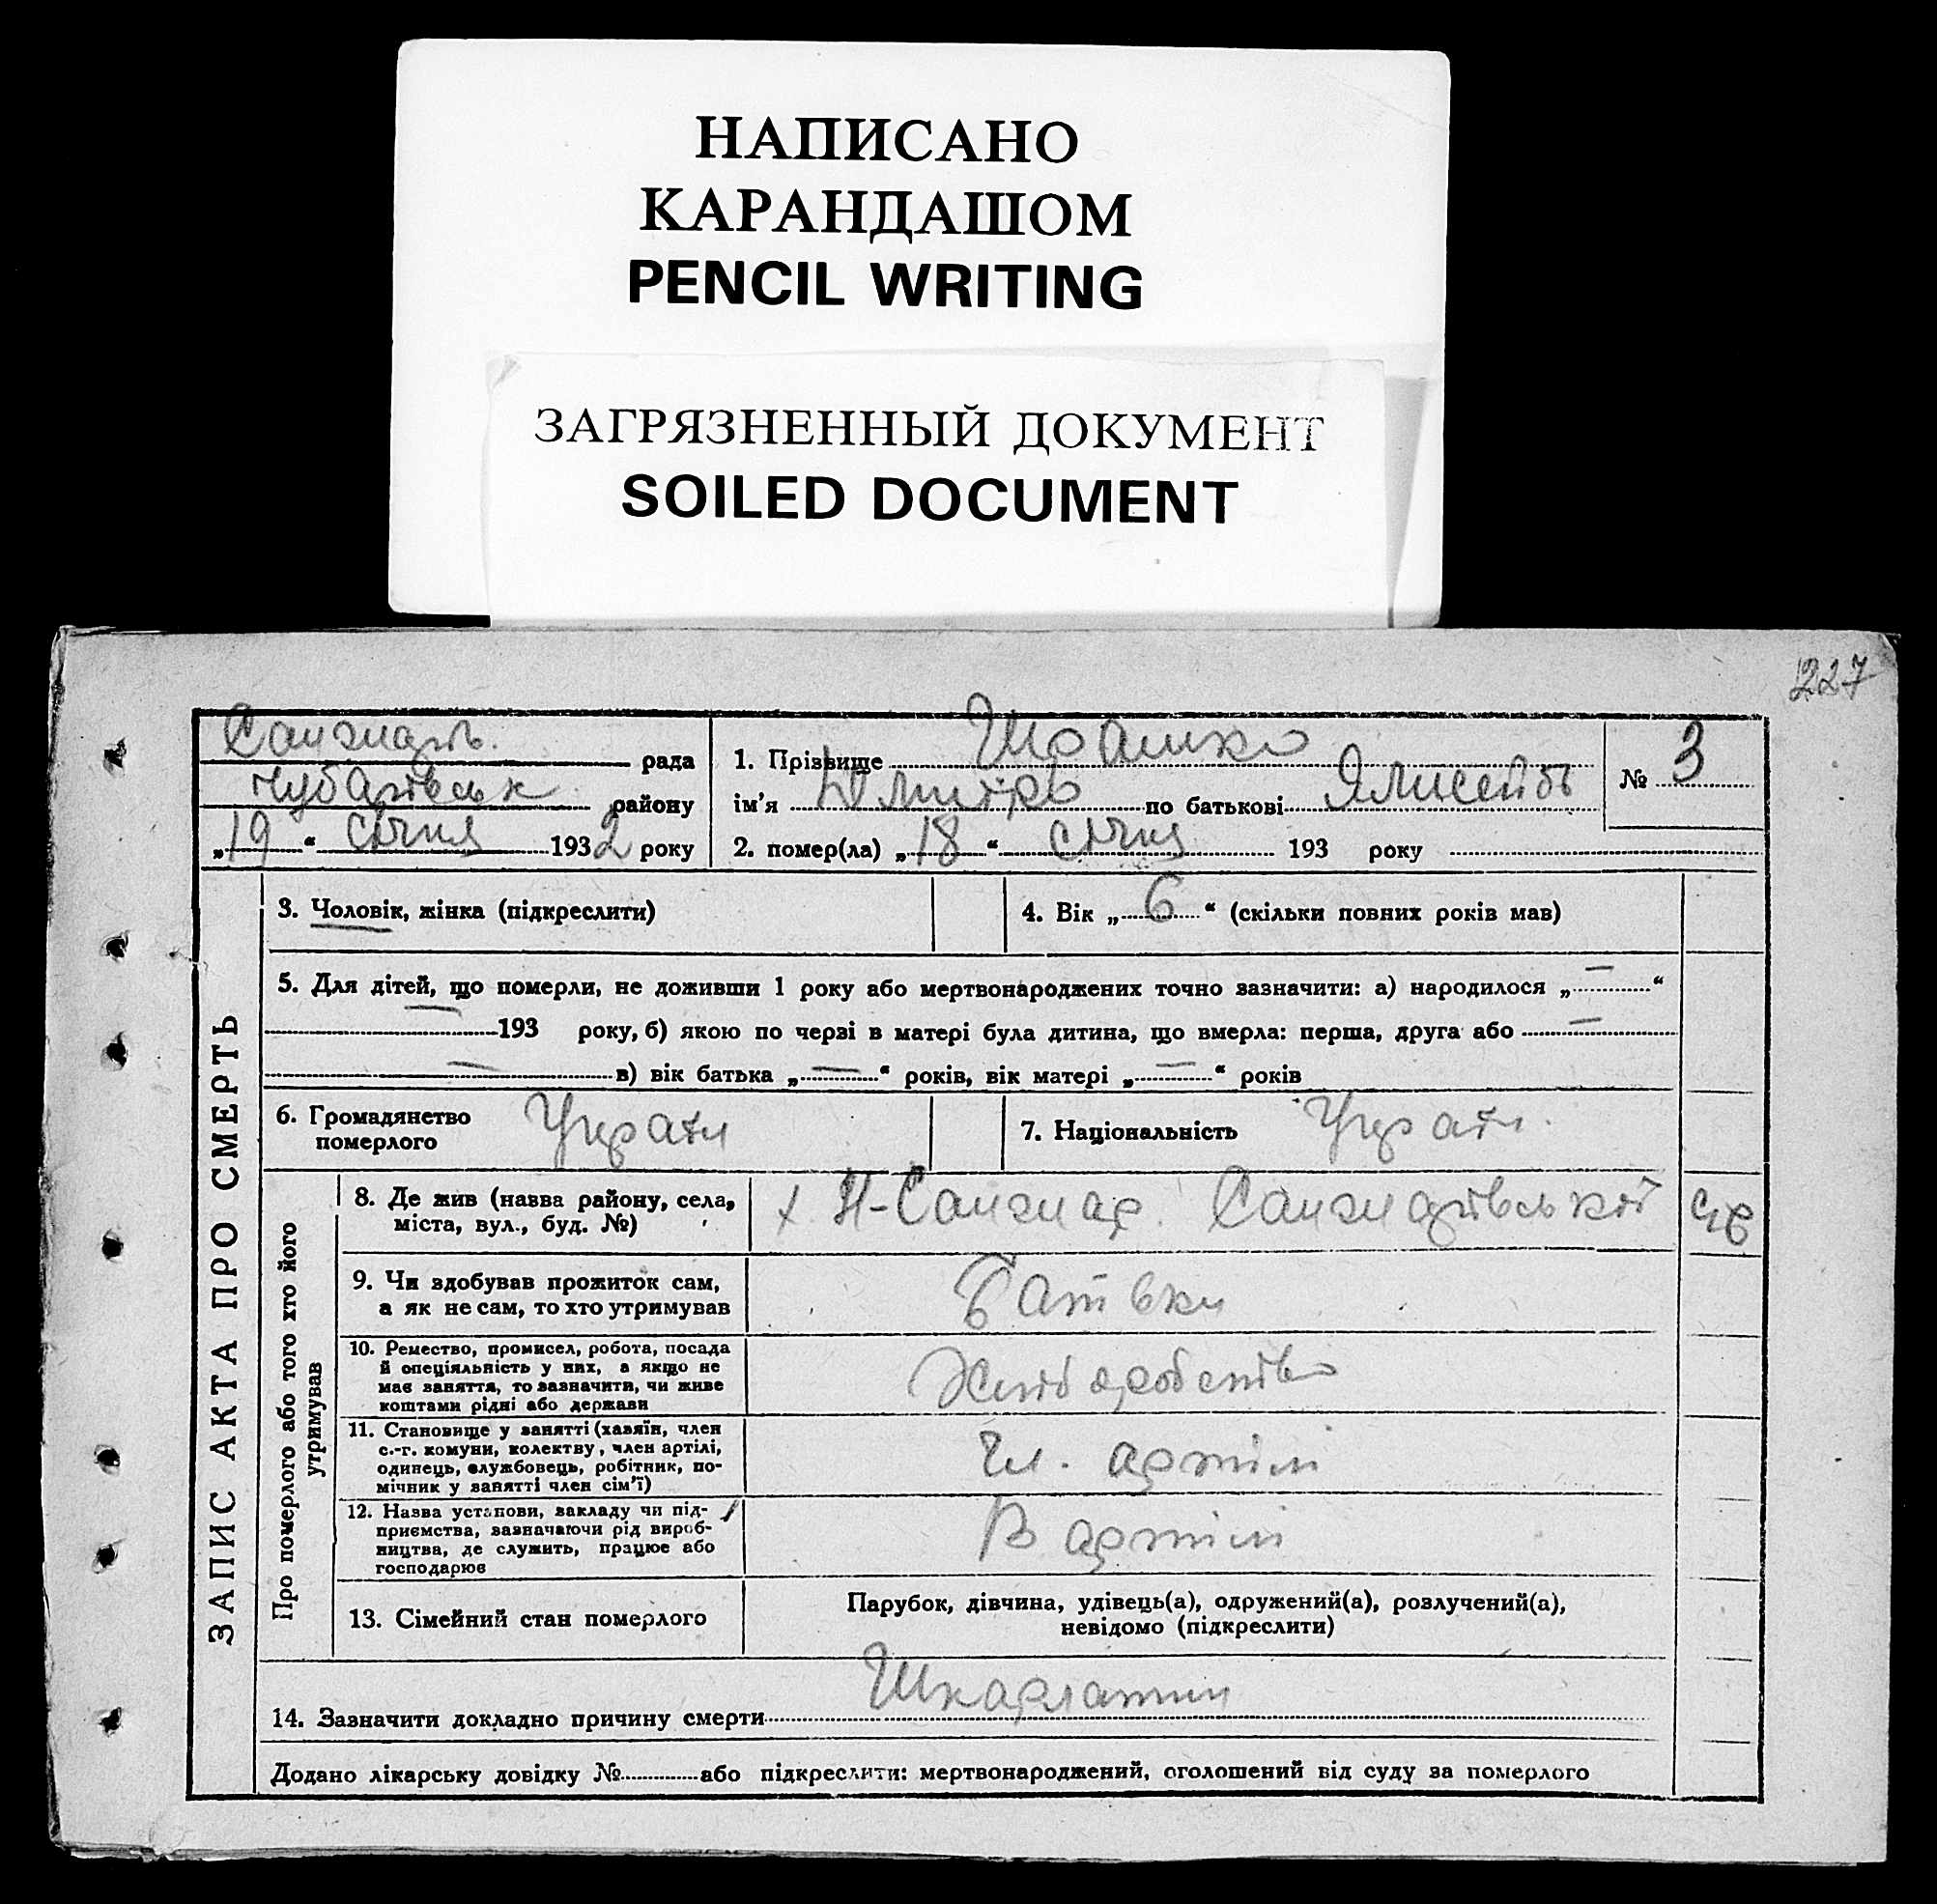 НАПИСАНО
КАРАНДАШОМ
PENCIL WRITING
ЗАГРЯЗНЕННЫЙ ДОКУМЕНТ
SOILED DOCUMENT
227
рада
району
„19“ січня 1932 року
1. Прізвище
ім'я Дмитро по батькові
№ 3
2. помер(ла) „18“ січня 193 року
ЗАПИС АКТА ПРО СМЕРТЬ
3. Чоловік, жінка (підкреслити)
4. Вік „6“ (скільки повних років мав)
5. Для дітей, що померли, не доживши 1 року або мертвонароджених точно зазначити: а) народилося „—“
— 193 року, б) якою по черзі в матері була дитина, що вмерла: перша, друга або —
— в) вік батька „—“ років, вік матері „—“ років
6. Громадянство
померлого
Україн
7. Національність Україн.
Про померлого або того хто його
утримував
8. Де жив (назва району, села,
міста, вул., буд. №)
х Н-Санжар. Санжарівської с/р
9. Чи здобував прожиток сам,
а як не сам, то хто утримував
Батьки
10. Ремество, промисел, робота, посада
й спеціяльність у них, а якщо не
має заняття, то зазначити, чи живе
коштами рідні або держави
Хліборобство
11. Становище у занятті (хазяїн, член
с.-г. комуни, колектву, член артілі,
одинець, службовець, робітник, по-
мічник у занятті член сім'ї)
Чл. артілі
12. Назва установи, закладу чи під-
приємства, зазначаючи рід вироб-
ництва, де служить, працює або
господарює
В артілі
13. Сімейний стан померлого
Парубок, дівчина, удівець(а), одружений(а), розлучений(а),
невідомо (підкреслити)
14. Зазначити докладно причину смерти Шкарлатини
Додано лікарську довідку № або підкреслити: мертвонароджений, оголошений від суду за померлого